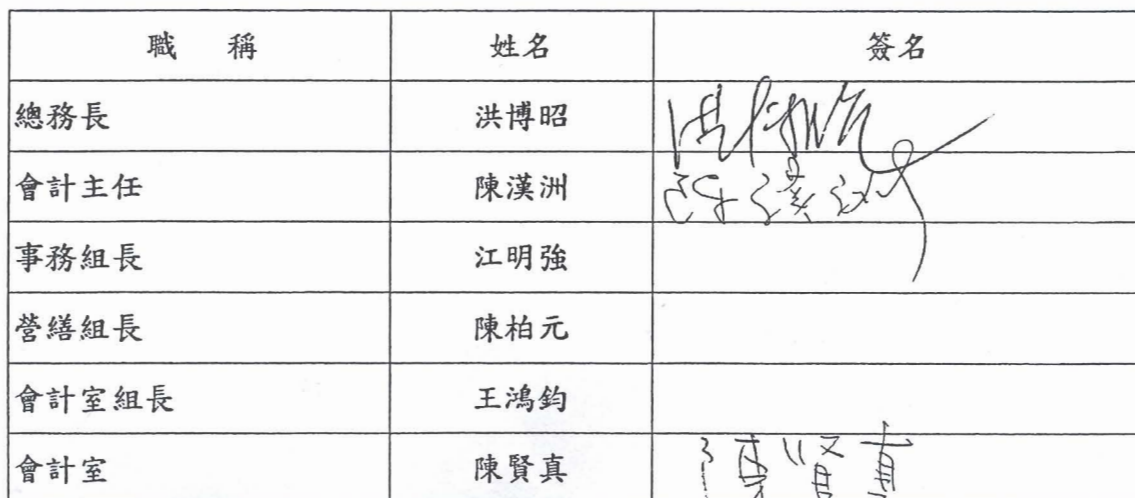 職 稱 姓名 簽名
總務長 洪博昭 洪博昭
會計主任 陳漢洲 陳漢洲
事務組長 江明強
營繕組長 陳柏元
會計室組長 王鴻鈞
會計室 陳賢真 陳賢真